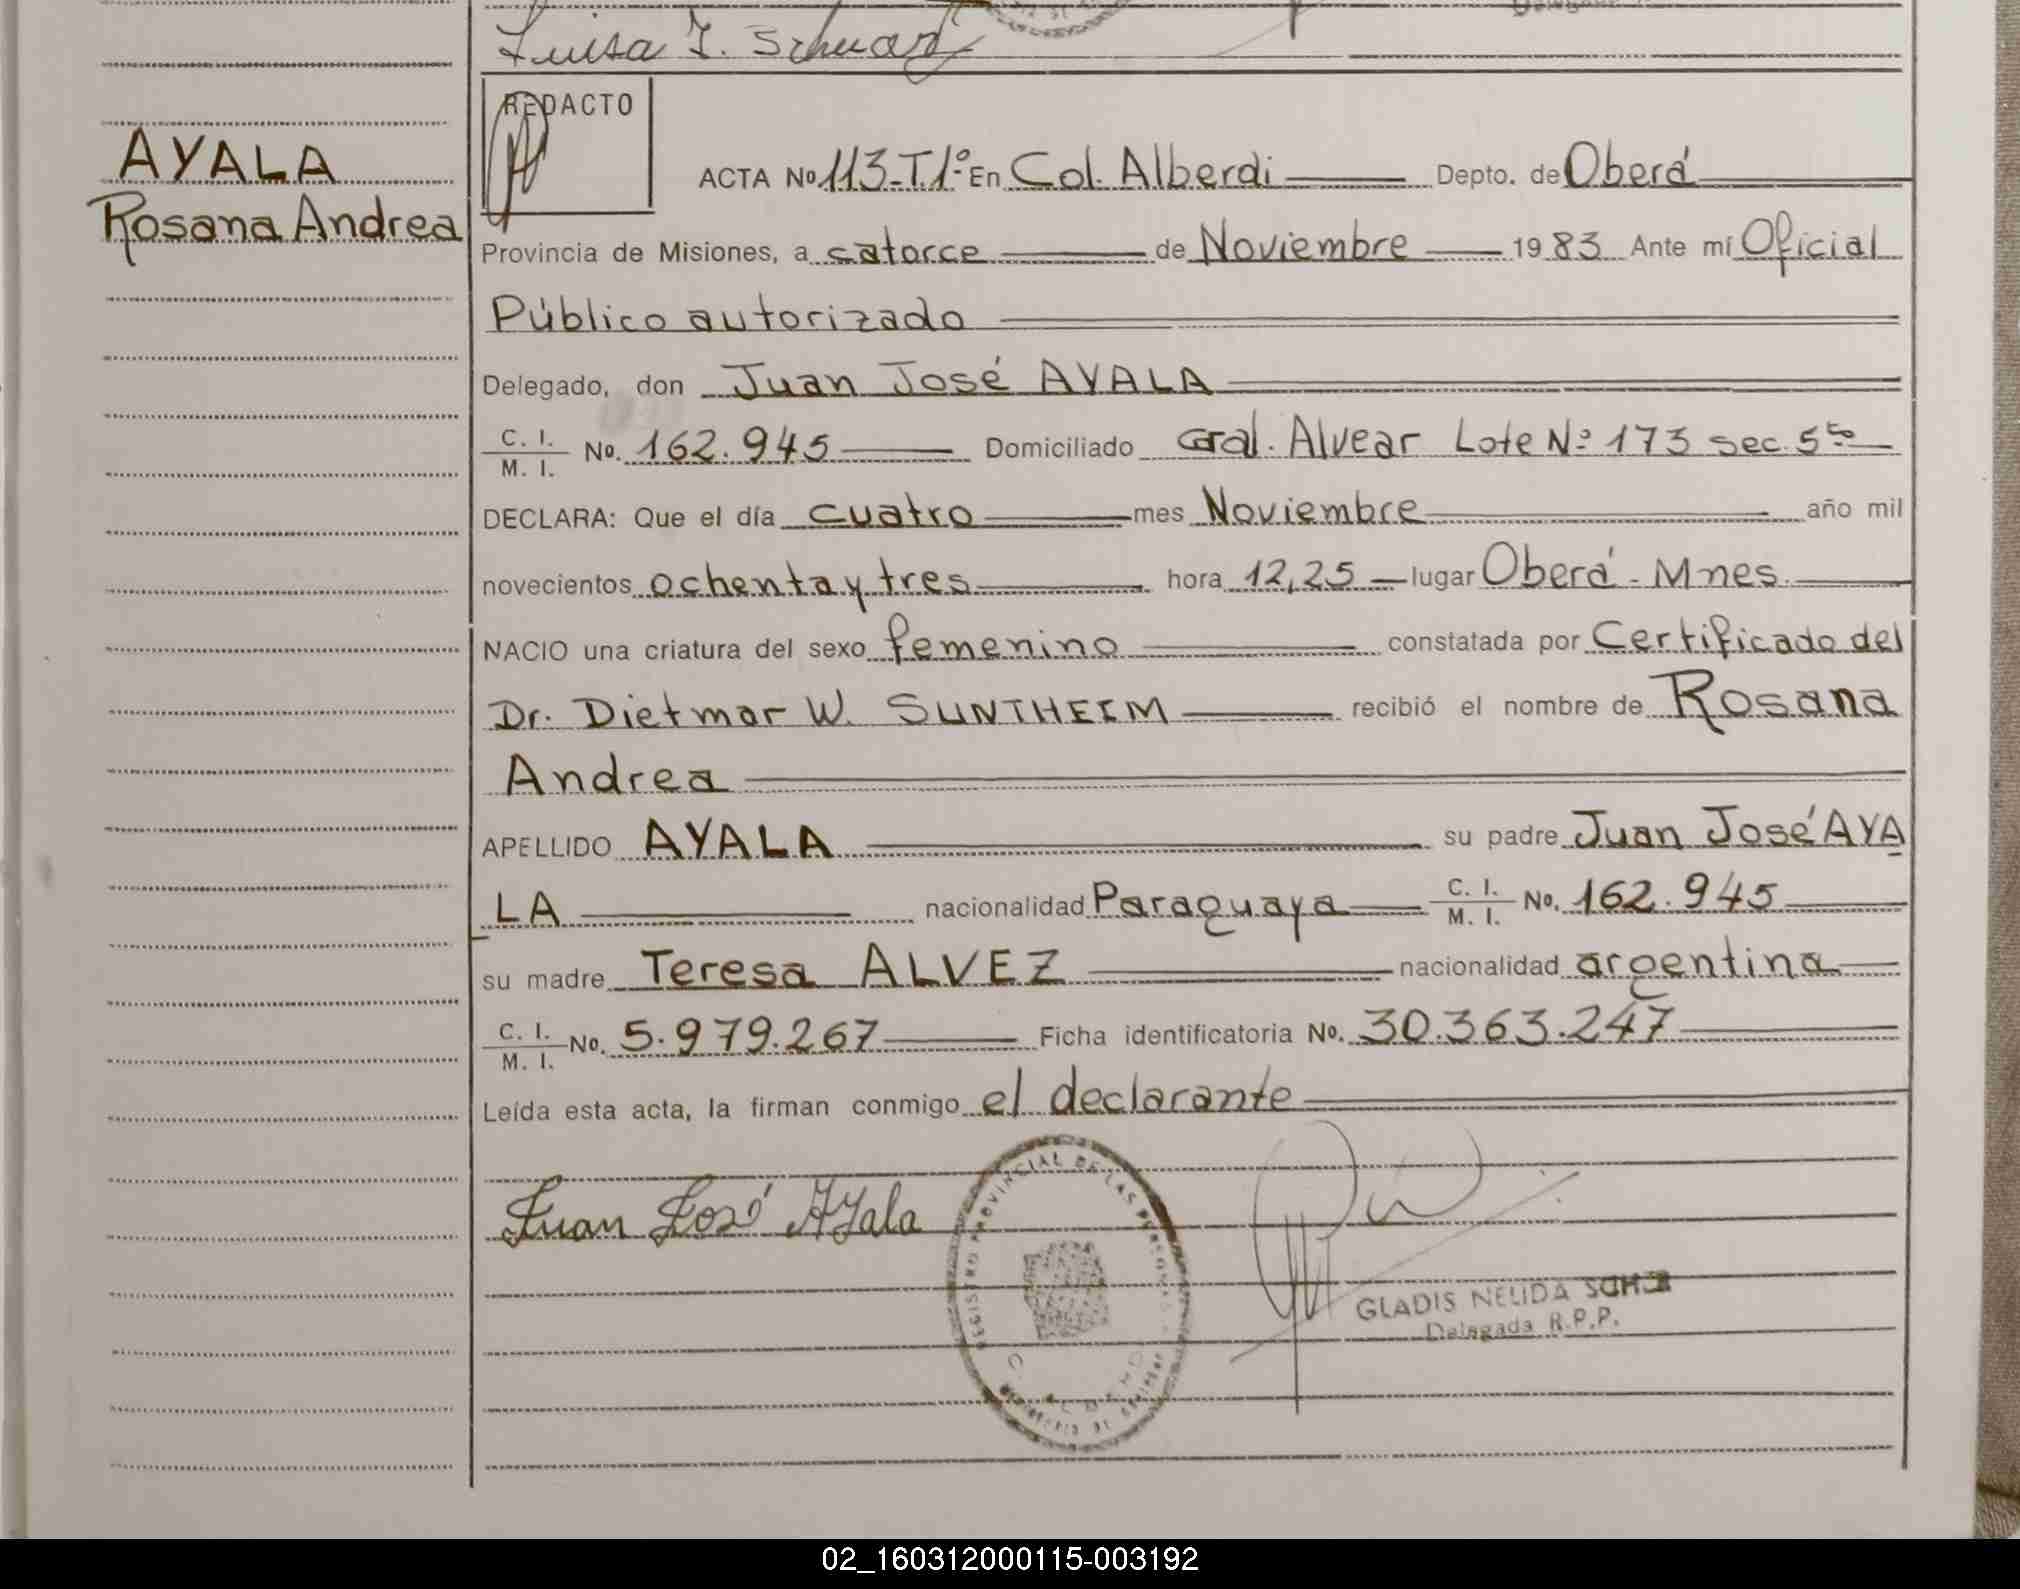 Luisa I. Schwarz
REDACTO
AYALA
Rosana Andrea
ACTA Nº 113-T.1º En Col. Alberdi Depto. de Oberá
Provincia de Misiones, a catorce de Noviembre 1983 Ante mí Oficial
Público autorizado
Delegado, don Juan José AYALA
C. I. / M. I. Nº. 162.945 Domiciliado Gral. Alvear Lote Nº 173 sec. 5ta
DECLARA: Que el día cuatro mes Noviembre año mil
novecientos ochenta y tres hora 12,25 lugar Oberá - Mnes.
NACIO una criatura del sexo femenino constatada por Certificado del
Dr. Dietmar W. SUNTHEIM recibió el nombre de Rosana
Andrea
APELLIDO AYALA su padre Juan José AYA
LA nacionalidad Paraguaya C. I. / M. I. Nº. 162.945
su madre Teresa ALVEZ nacionalidad argentina
C. I. / M. I. Nº. 5.979.267 Ficha identificatoria Nº. 30.363.247
Leída esta acta, la firman conmigo el declarante
Juan José Ayala
REGISTRO PROVINCIAL DE LAS PERSONAS
GLADIS NELIDA
Delegada R.P.P.
02_160312000115-003192